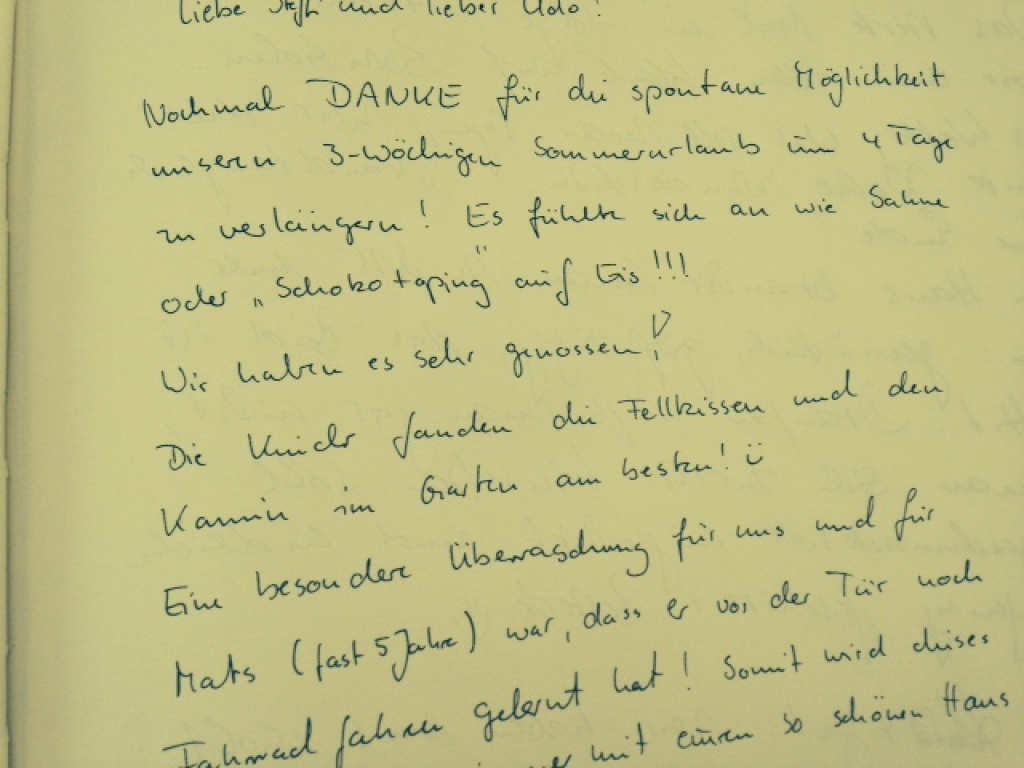 Liebe Steffi und lieber Udo!
Nochmal DANKE für die spontane Möglichkeit
unseren 3-wöchigen Sommerurlaub um 4 Tage
zu verlängern! Es fühlte sich an wie Sahne
oder „Schokotoping" auf Eis!!!
Wir haben es sehr genossen!
Die Kinder fanden die Fellkissen und den
Kamin im Garten am besten! ü
Eine besondere Überraschung für uns und für
Mats (fast 5 Jahre) war, dass er vor der Tür noch
Fahrrad fahren gelernt hat! Somit wird dieses
mit eurem so schönen Haus